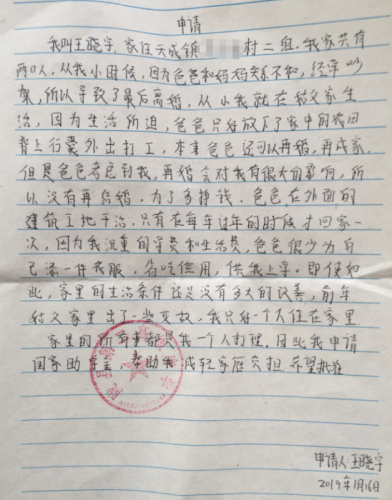 申请
我叫王晓宇,家住天成镇 村二组,我家共有
两口人,从我小时候,因为爸爸和妈妈关系不和,经常吵
架,所以导致了最后离婚,从小我就在 父家生
活,因为生活所迫,爸爸只好放下了家中的农田
背上行囊外出打工,本来爸爸还可以再婚,再成家,
但是爸爸考虑到我,再婚会对我有很大的影响,所
以没有再结婚,为了多挣钱,爸爸在外面的
建筑工地干活,只有在每年过年的时候才回家一
次,因为我沉重的学费和生活费,爸爸很少为自
己添一件衣服,省吃俭用,供我上学,即使如
此,家里的生活条件还是没有多大的改善,前年
父家里出了一些变故,我只好一个人住在家里
家里的所有事都是我一个人打理,因此我申请
国家助学金 帮助我减轻家庭负担 希望批准
申请人 王晓宇
2019年1月16日